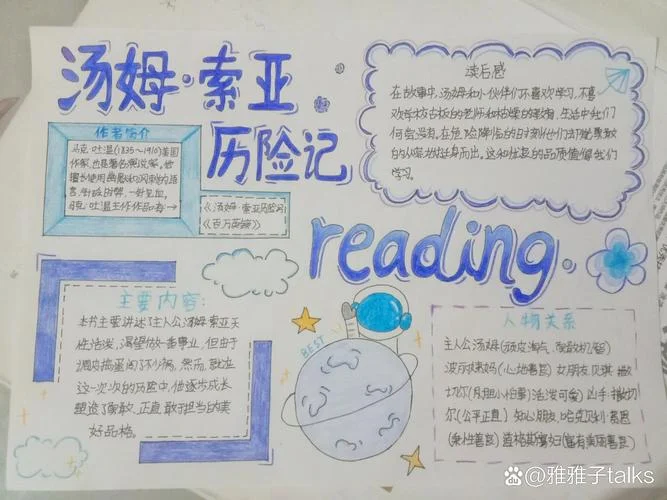 汤姆·索亚
历险记
作者简介
马克·吐温(1835～1910)美国
作家,也是著名演说家。他
擅长使用幽默和讽刺的语
言,针砭时弊,一针见血,
马克·吐温主作作品有→
《汤姆·索亚历险记》
《百万英镑》
读后感
在故事中,汤姆和小伙伴们不喜欢学习,不喜
欢学校古板的老师和枯燥的教育,生活中我们
何尝没有。在危险降临的时刻他们却能勇敢
的从容地挺身而出。这种性质的品质值得我们
学习。
reading.
主要内容:
本书主要讲述了主人公汤姆·索亚天
性活泼,渴望做一番事业,但由于
调皮捣蛋闯了不少祸,然而,就在
这一次次的历险中,他逐步成长
塑造了勇敢、正直、敢于担当的美
好品格。
BEST
人物关系
主人公汤姆(顽皮淘气、勇敢机智)
波莉姨妈(心地善良) 女朋友贝琪·撒
切尔(有胆小怕事)活泼可爱) 撒切
尔(公平正直) 知心朋友、哈克贝利·费恩
(秉性善良) 道格斯寡妇(富有美丽善良)
雅雅子talks